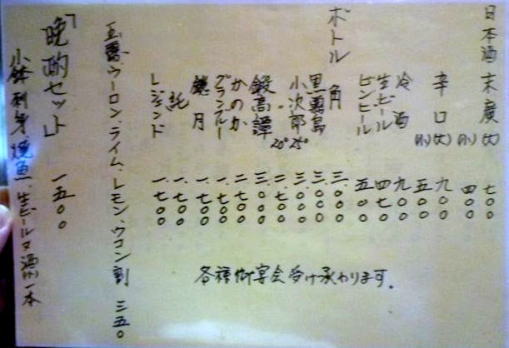 日本酒 末廣 (大) 七〇〇
(小) 四〇〇
辛口 (大) 九〇〇
(小) 五〇〇
冷酒 九〇〇
生ビール 四七〇
ビンビール 五〇〇
ボトル
角 三、〇〇〇
黒霧島 三、〇〇〇
小次郎 25° 三、〇〇〇
20° 二、〇〇〇
鍛高譚 三、〇〇〇
かのか 二、〇〇〇
グランブルー 一、〇〇〇
月 一、七〇〇
一、七〇〇
レジェンド 一、七〇〇
玉露・ウーロン・ライム・レモン・ウコン割 三五〇
「晩酌セット」 一五〇〇
小鉢・刺身・焼魚・生ビール又酒(小)一本
各種御宴会受け承わります。